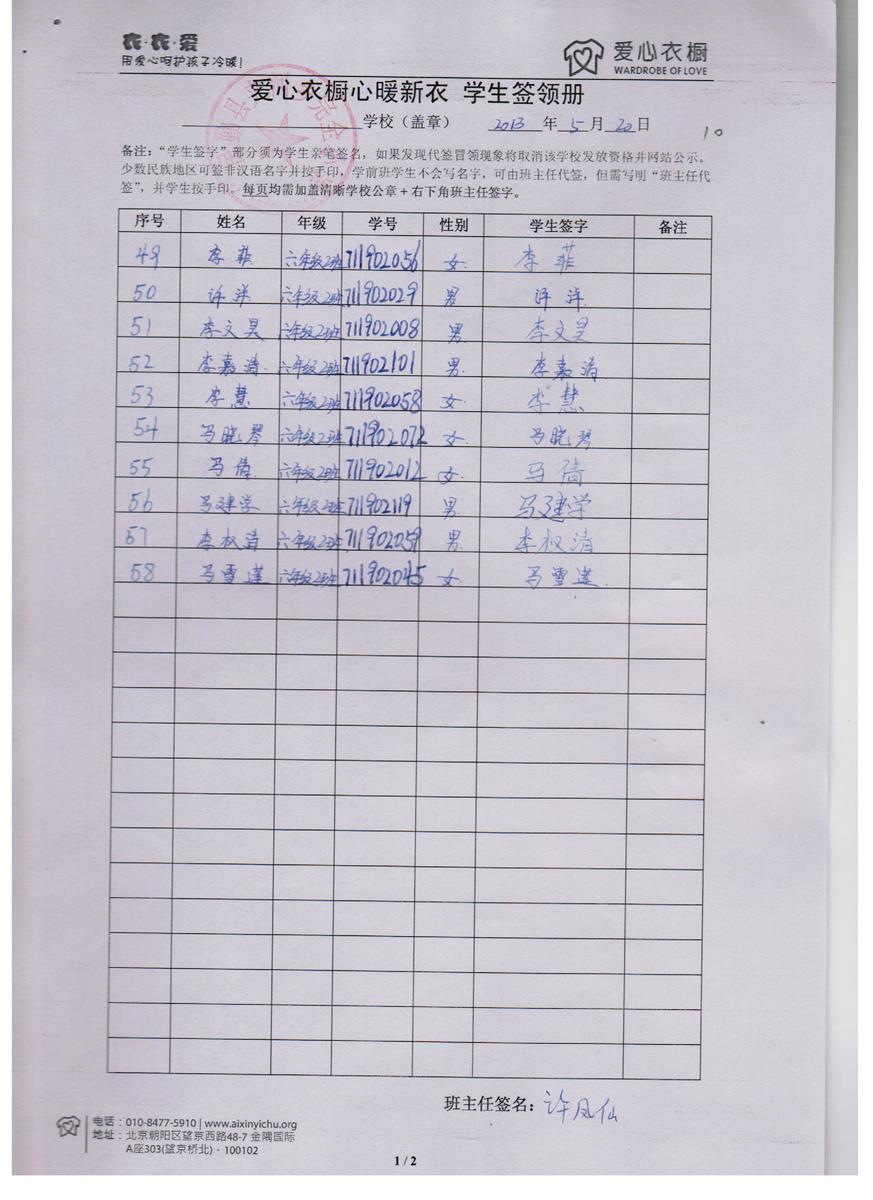 衣·衣·爱
用爱心呵护孩子冷暖!
爱心衣橱
WARDROBE OF LOVE
爱心衣橱心暖新衣 学生签领册
学校（盖章） 2013 年 5 月 20 日
10
备注：“学生签字”部分须为学生亲笔签名，如果发现代签冒领现象将取消该学校发放资格并网站公示。
少数民族地区可签非汉语名字并按手印，学前班学生不会写名字，可由班主任代签，但需写明“班主任代
签”，并学生按手印。每页均需加盖清晰学校公章+右下角班主任签字。
序号 姓名 年级 学号 性别 学生签字 备注
49 李菲 六年级2班 711902056 女 李菲
50 许洋 六年级2班 711902029 男 许洋
51 李文昊 六年级2班 711902008 男 李文昊
52 李嘉清 六年级2班 711902101 男 李嘉清
53 李慧 六年级2班 711902058 女 李慧
54 马晓琴 六年级2班 711902072 女 马晓琴
55 马倩 六年级2班 711902012 女 马倩
56 马建学 六年级2班 711902119 男 马建学
57 李权清 六年级2班 711902059 男 李权清
58 马雪莲 六年级2班 711902045 女 马雪莲
班主任签名：许凤仙
电话：010-8477-5910 | www.aixinyichu.org
地址：北京朝阳区望京西路48-7 金隅国际
A座303(望京桥北)·100102
1 / 2